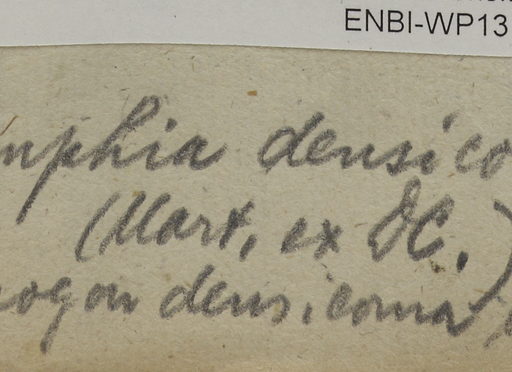 ENBI-WP13
mphia densico
(Mart, ex DC.)
pogon dens.coma